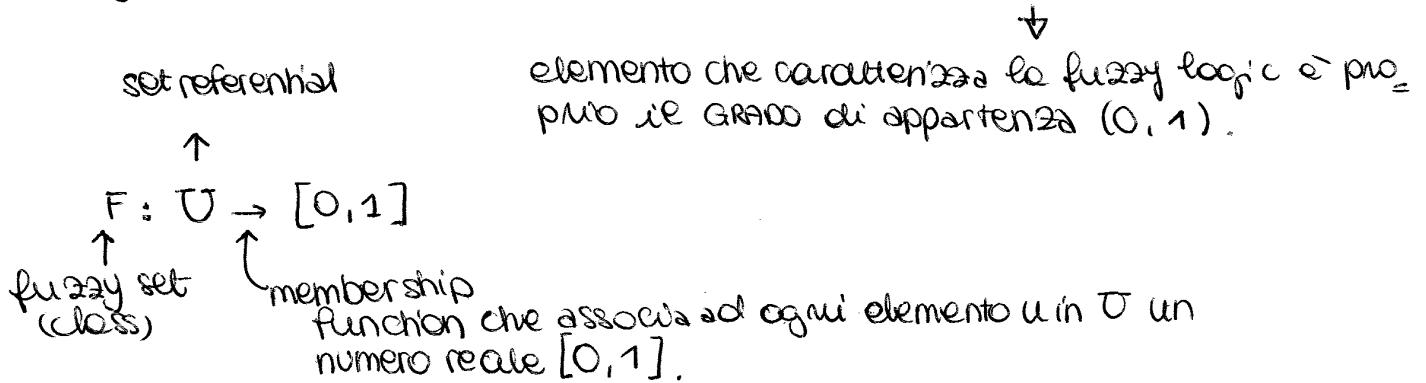 set referential
elemento che caratterizza la fuzzy logic è pro=
prio il GRADO di appartenza (0,1).
↑
F : U → [0,1]
↑ ↑
fuzzy set membership
(class) function che associa ad ogni elemento u in U un
numero reale [0,1].